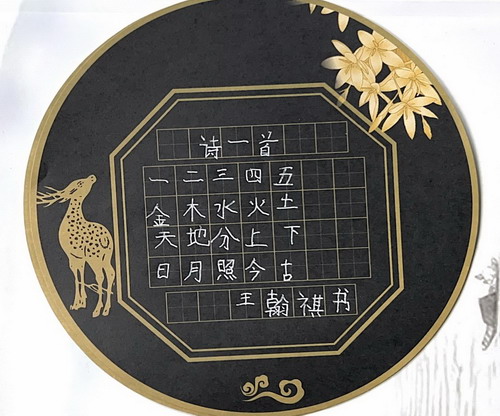 诗一首
一二三四五
金木水火土
天地分上下
日月照今古
王翰祺书